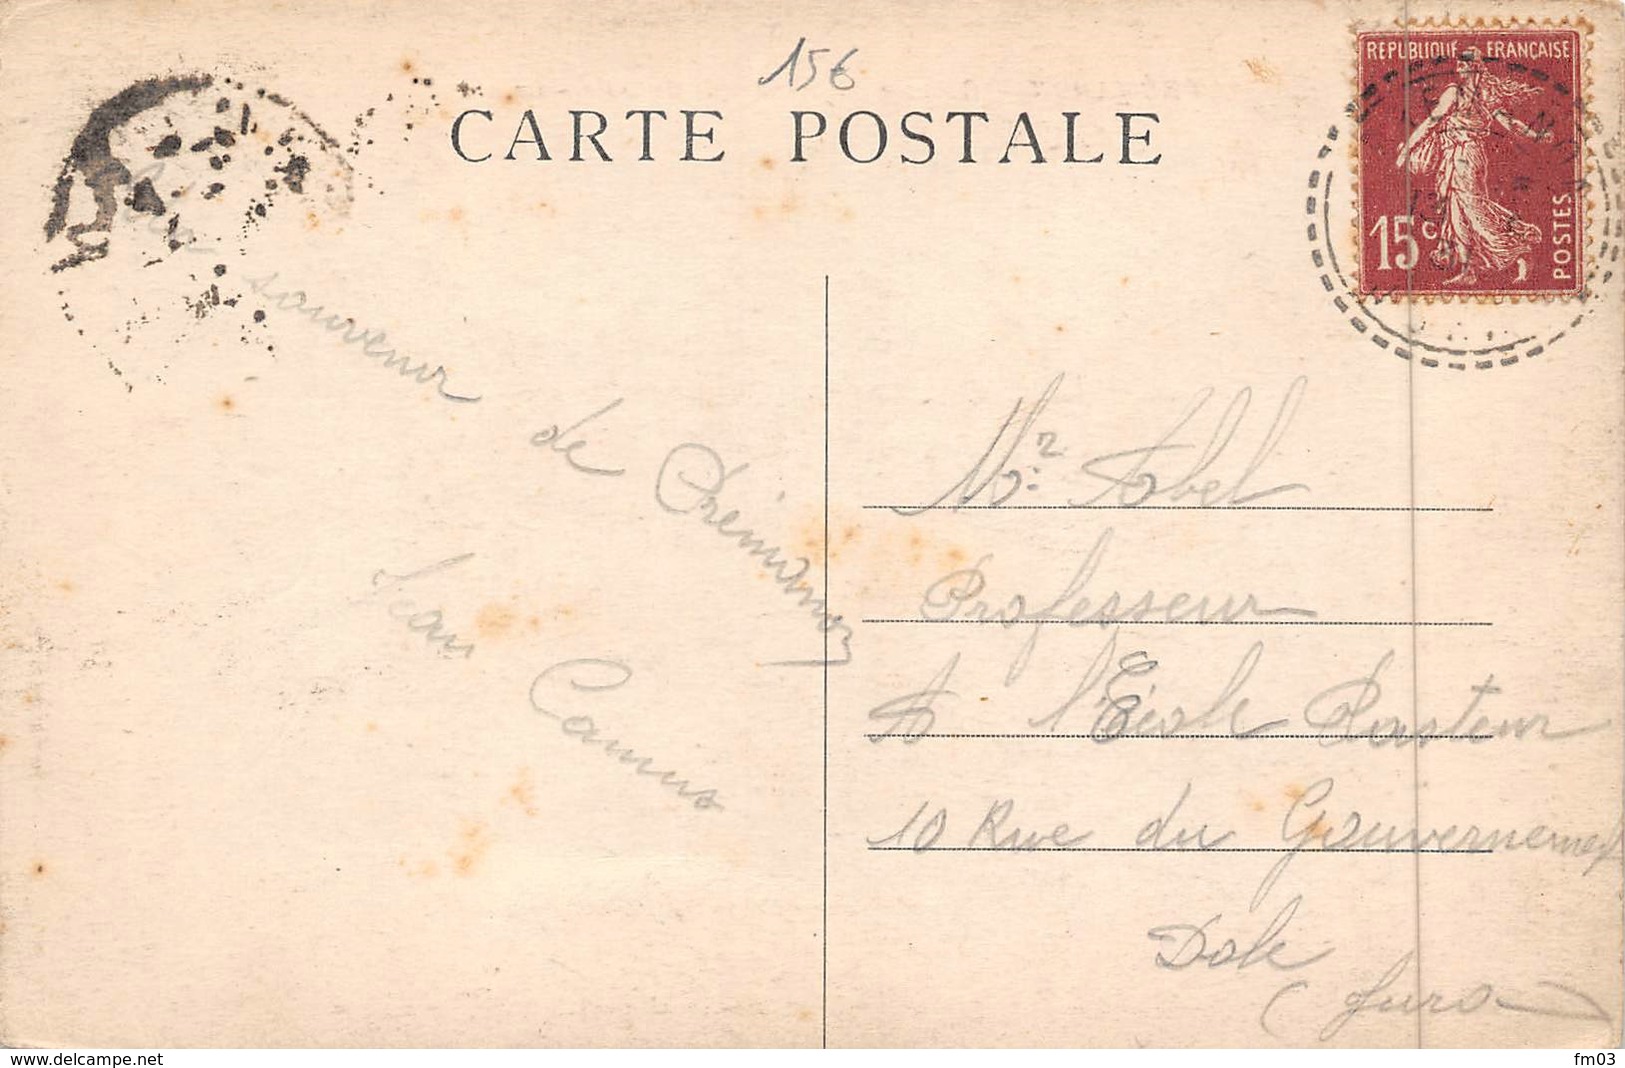 15€
CARTE POSTALE
REPUBLIQUE FRANCAISE
15c
POSTES
souvenir de Prémanon
Jean Camus
Mr. Abel
Professeur
A l'École Pasteur
10 Rue du Gouvernement
Dole
(Jura)
www.delcampe.net
fm03